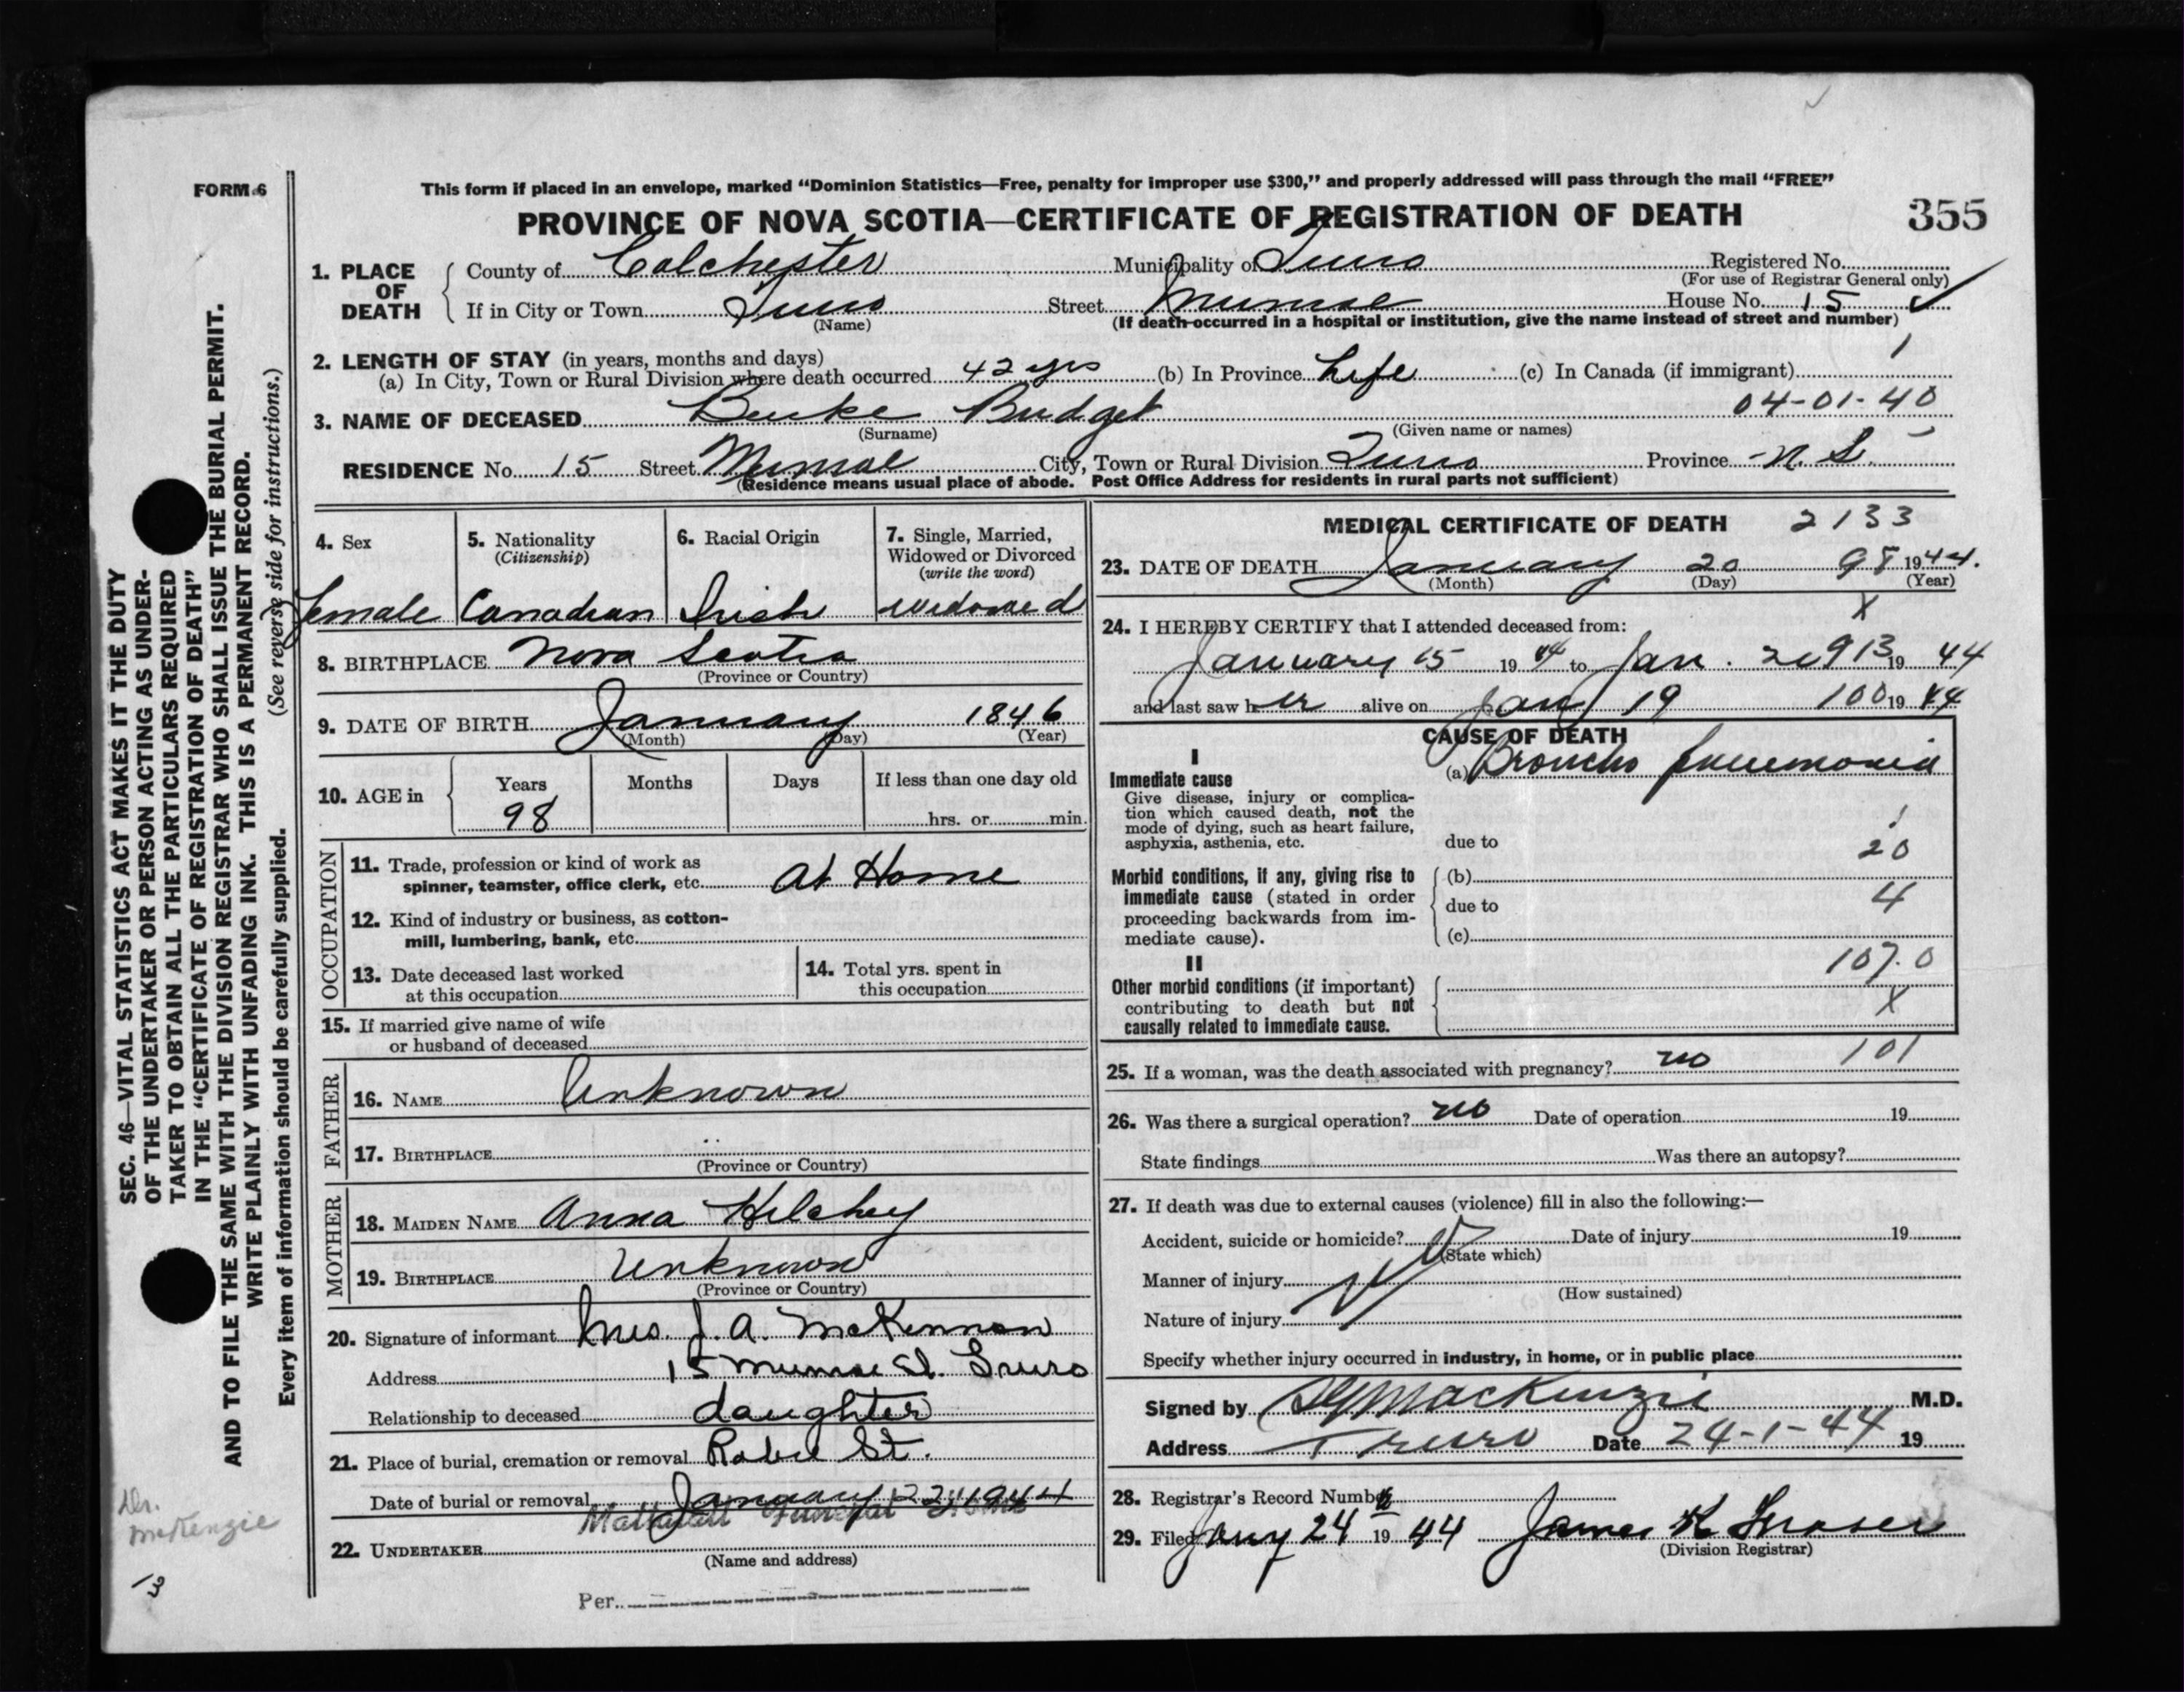 FORM 6
This form if placed in an envelope, marked “Dominion Statistics—Free, penalty for improper use $300,” and properly addressed will pass through the mail “FREE”
PROVINCE OF NOVA SCOTIA—CERTIFICATE OF REGISTRATION OF DEATH
355
1. PLACE OF DEATH
County of Colchester Municipality of Truro Registered No.
(For use of Registrar General only)
If in City or Town Truro Street House No. 15
(Name)
(If death occurred in a hospital or institution, give the name instead of street and number)
1
2. LENGTH OF STAY (in years, months and days)
(a) In City, Town or Rural Division where death occurred 42 yrs (b) In Province Life (c) In Canada (if immigrant)
04-01-40
3. NAME OF DECEASED Burke Bridget
(Surname) (Given name or names)
RESIDENCE No. 15 Street City, Town or Rural Division Truro Province N.S.
(Residence means usual place of abode. Post Office Address for residents in rural parts not sufficient)
4. Sex
Female
5. Nationality
(Citizenship)
Canadian
6. Racial Origin
Irish
7. Single, Married,
Widowed or Divorced
(write the word)
Widowed
8. BIRTHPLACE Nova Scotia
(Province or Country)
9. DATE OF BIRTH January 1846
(Month) (Day) (Year)
10. AGE in
Years Months Days If less than one day old
98 hrs. or min.
OCCUPATION
11. Trade, profession or kind of work as
spinner, teamster, office clerk, etc. At Home
12. Kind of industry or business, as cotton-
mill, lumbering, bank, etc.
13. Date deceased last worked
at this occupation
14. Total yrs. spent in
this occupation
15. If married give name of wife
or husband of deceased
FATHER
16. NAME Unknown
17. BIRTHPLACE "
(Province or Country)
MOTHER
18. MAIDEN NAME Anna
19. BIRTHPLACE Unknown
(Province or Country)
20. Signature of informant Mrs. J. A. McKinnon
Address 15 St. Truro
Relationship to deceased daughter
21. Place of burial, cremation or removal Robie St.
Date of burial or removal January 22 1944
Mattatall Funeral Home
22. UNDERTAKER
(Name and address)
Per
MEDICAL CERTIFICATE OF DEATH 2133
23. DATE OF DEATH January 20 98 1944.
(Month) (Day) (Year)
X
24. I HEREBY CERTIFY that I attended deceased from:
January 15 19 44 to Jan. 20 913 19 44
and last saw her alive on Jany 19 100 19 44
CAUSE OF DEATH
I
Immediate cause
Give disease, injury or complica-
tion which caused death, not the
mode of dying, such as heart failure,
asphyxia, asthenia, etc.
(a) Broncho pneumonia
1
due to
20
Morbid conditions, if any, giving rise to
immediate cause (stated in order
proceeding backwards from im-
mediate cause).
(b)
due to
4
(c)
107.0
II
Other morbid conditions (if important)
contributing to death but not
causally related to immediate cause.
X
101
25. If a woman, was the death associated with pregnancy? no
26. Was there a surgical operation? no Date of operation 19
State findings Was there an autopsy?
27. If death was due to external causes (violence) fill in also the following:—
Accident, suicide or homicide? Date of injury 19
(State which)
Manner of injury
(How sustained)
Nature of injury
Specify whether injury occurred in industry, in home, or in public place
Signed by MacKenzie M.D.
Address Truro Date 24-1-44 19
28. Registrar's Record Number
29. Filed Jany 24 19 44 James K Fraser
(Division Registrar)
SEC. 46—VITAL STATISTICS ACT MAKES IT THE DUTY
OF THE UNDERTAKER OR PERSON ACTING AS UNDER-
TAKER TO OBTAIN ALL THE PARTICULARS REQUIRED
IN THE “CERTIFICATE OF REGISTRATION OF DEATH”
AND TO FILE THE SAME WITH THE DIVISION REGISTRAR WHO SHALL ISSUE THE BURIAL PERMIT.
WRITE PLAINLY WITH UNFADING INK. THIS IS A PERMANENT RECORD.
(See reverse side for instructions.)
Every item of information should be carefully supplied.
Dr.
McKenzie
13